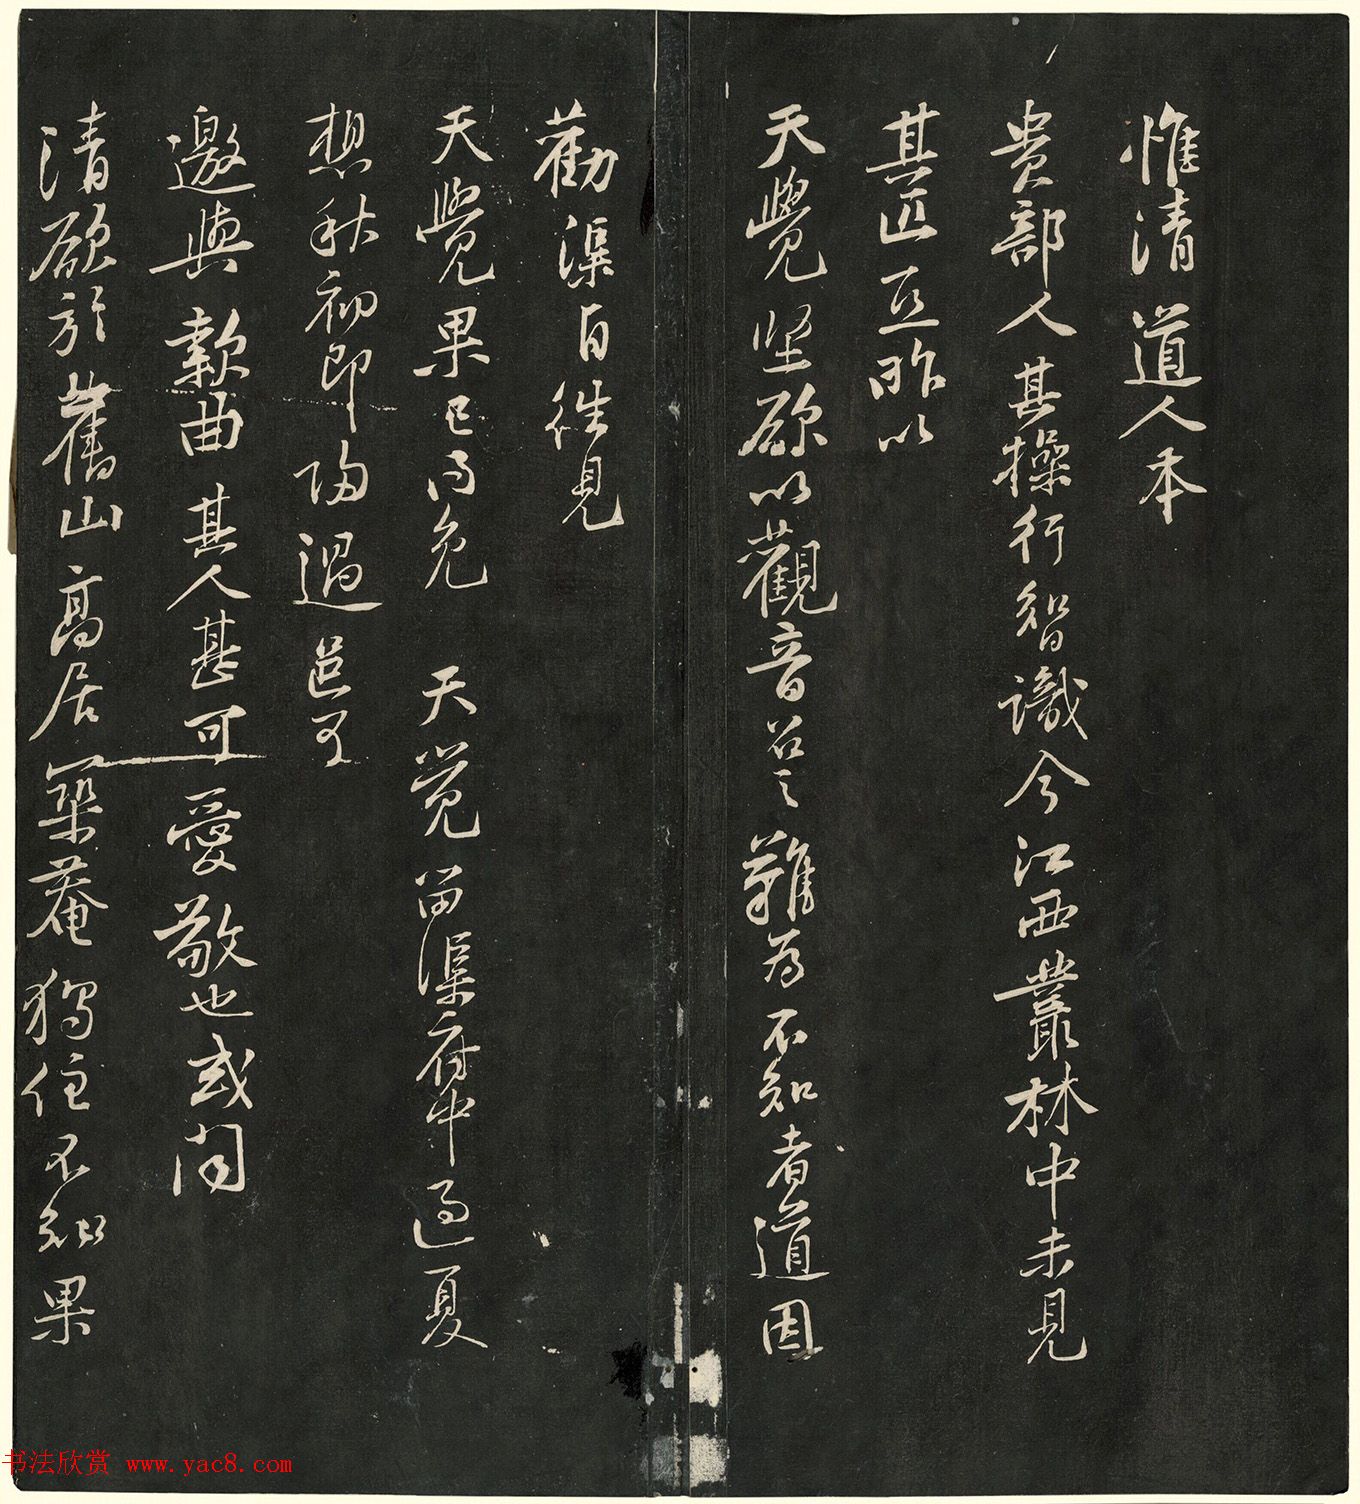 惟清道人本
貴部人其操行智識今江西叢林中未見
其匹亞昨以
天覺堅欲以觀音召之難為不知者道因
勸渠自往見
天覺果已得免 天覺留渠府中過夏
想秋初即歸過邑可
邀與款曲其人甚可愛敬也或聞
清欲於舊山高居築菴獨住不知果
书法欣赏 www.yac8.com